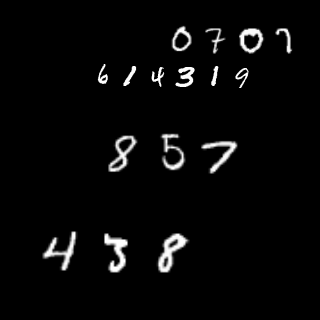 0707
614319
857
438